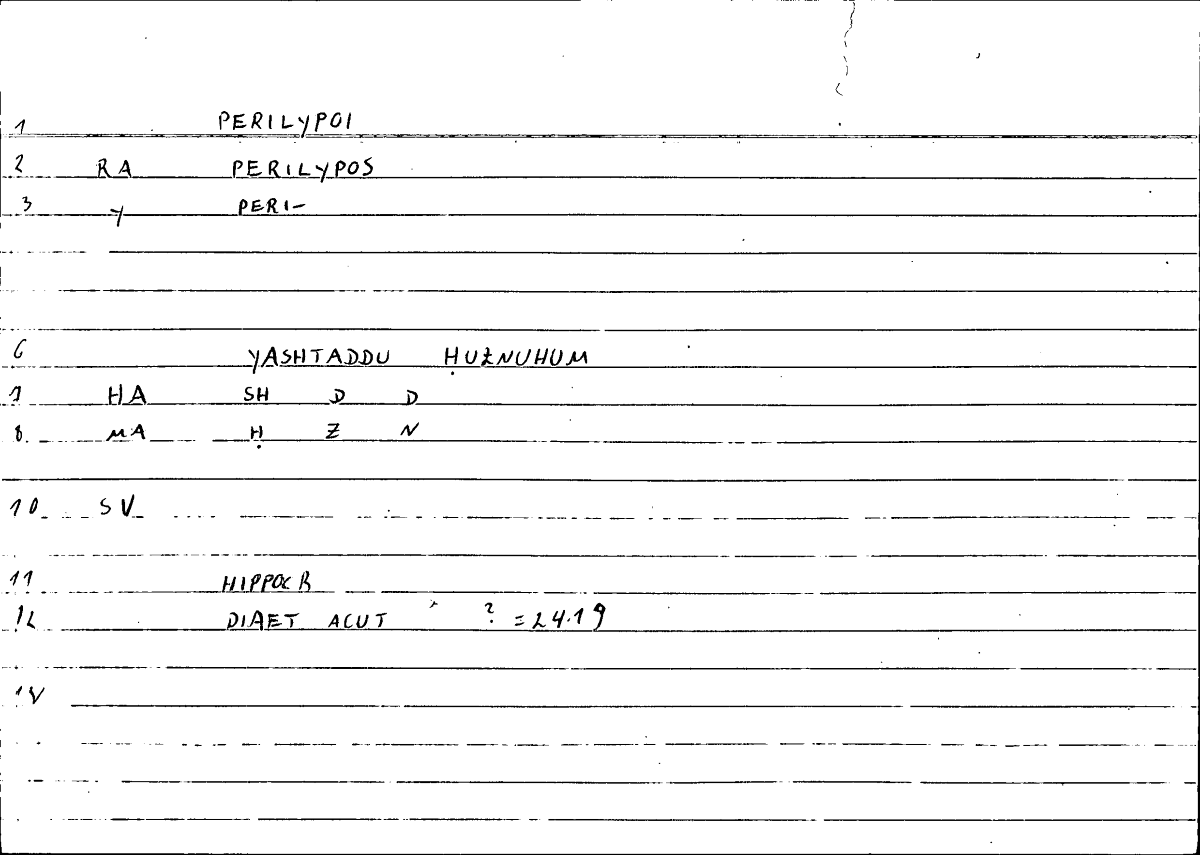 1 PERILYPOI
2 RA PERILYPOS
3 Y PERI-
6 YASHTADDU ḤUZNUHUM
7 HA SH D D
8 MA Ḥ Z N
10 SV
11 HIPPOCR
12 DIAET ACUT ? = 24.19